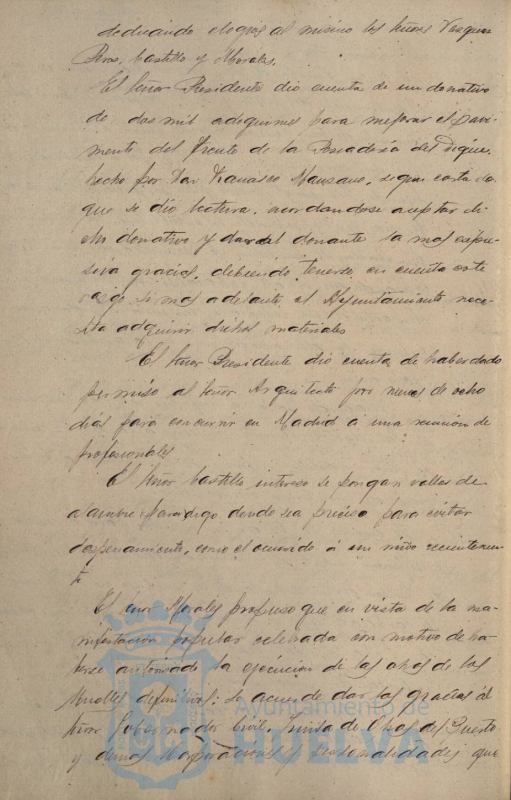 dedicando elogios al mismo los señores Vazquez
Ros, Castillo y Morales.
El señor Presidente dio cuenta de un donativo
de dos mil adoquines para mejorar el pavi-
mento del frente de la Pescaderia del Dique,
hecho por Don Francisco Manzano, segun carta de
que se dio lectura, acordandose aceptar di-
cho donativo y dar al donante la mas expre-
siva gracias, debiendo tenerse en cuenta este
rasgo si mas adelante el Ayuntamiento nece-
sita adquirir dichos materiales
El señor Presidente dio cuenta de haber dado
permiso al señor Arquitecto por menos de ocho
dias para concurrir en Madrid á una reunion de
profesionales
El señor Castillo intereso se pongan vallas de
alambre donde sea preciso para evitar
despeñamiento, como el ocurrido á un niño recientemen-
te
El señor Morales propuso que en vista de la ma-
nifestación popular celebrada con motivo de ha-
berse autorizado la ejecucion de las obras de los
Muelles definitivos: se acuerde dar las gracias al
señor Gobernador Civil, Junta de Obras del Puerto
y demas Corporaciones y personalidades que
Ayuntamiento de
HUELVA